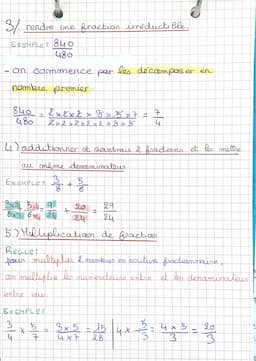 3/ rendre une fraction irréductible
EXEMPLE: 840/480
- on commence par les décomposer en
nombres premier
840/480 = 2x2x2x3x5x7/2x2x2x2x2x3x5 = 7/4
4) additionner et soustrais 2 fractions et les mettre
au même dénominateur
EXEMPLE: 3/8 + 5/6
3x3/8x3 + 5x4/6x4 = 9/24 + 20/24 = 29/24
5) Multiplication de fraction
REGLE:
pour multiplier 2 nombres en écriture fractionnaire,
on multiplie les numérateurs entre et les dénominateurs
entre eux.
EXEMPLE:
3/4 x 5/7 = 3x5/4x7 = 15/28 | 4 x 5/3 = 4x5/3 = 20/3